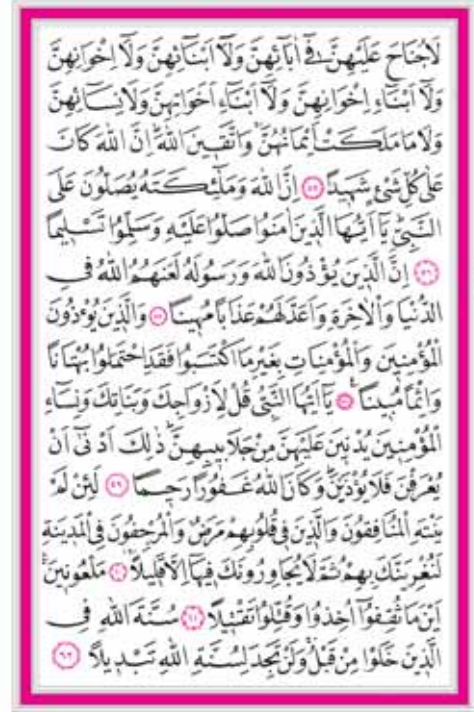 لَاجُنَاحَ عَلَيْهِنَّ ف۪ٓي اٰبَٓائِهِنَّ وَلَٓا اَبْنَٓائِهِنَّ وَلَٓا اِخْوَانِهِنَّ
وَلَٓا اَبْنَٓاءِ اِخْوَانِهِنَّ وَلَٓا اَبْنَٓاءِ اَخَوَاتِهِنَّ وَلَا نِسَٓائِهِنَّ
وَلَا مَا مَلَكَتْ اَيْمَانُهُنَّۚ وَاتَّق۪ينَ اللّٰهَۜ اِنَّ اللّٰهَ كَانَ
عَلٰى كُلِّ شَيْءٍ شَه۪يدًا ﴿٥٥﴾ اِنَّ اللّٰهَ وَمَلٰٓئِكَتَهُ يُصَلُّونَ عَلَى
النَّبِيِّۜ يَٓا اَيُّهَا الَّذ۪ينَ اٰمَنُوا صَلُّوا عَلَيْهِ وَسَلِّمُوا تَسْل۪يمًا
﴿٥٦﴾ اِنَّ الَّذ۪ينَ يُؤْذُونَ اللّٰهَ وَرَسُولَهُ لَعَنَهُمُ اللّٰهُ فِي
الدُّنْيَا وَالْاٰخِرَةِ وَاَعَدَّ لَهُمْ عَذَابًا مُه۪ينًا ﴿٥٧﴾ وَالَّذ۪ينَ يُؤْذُونَ
الْمُؤْمِن۪ينَ وَالْمُؤْمِنَاتِ بِغَيْرِ مَا اكْتَسَبُوا فَقَدِ احْتَمَلُوا بُهْتَانًا
وَاِثْمًا مُب۪ينًا۟ ﴿٥٨﴾ يَٓا اَيُّهَا النَّبِيُّ قُلْ لِاَزْوَاجِكَ وَبَنَاتِكَ وَنِسَٓاءِ
الْمُؤْمِن۪ينَ يُدْن۪ينَ عَلَيْهِنَّ مِنْ جَلَاب۪يبِهِنَّۜ ذٰلِكَ اَدْنٰٓى اَنْ
يُعْرَفْنَ فَلَا يُؤْذَيْنَۜ وَكَانَ اللّٰهُ غَفُورًا رَح۪يمًا ﴿٥٩﴾ لَئِنْ لَمْ
يَنْتَهِ الْمُنَافِقُونَ وَالَّذ۪ينَ ف۪ي قُلُوبِهِمْ مَرَضٌ وَالْمُرْجِفُونَ فِي الْمَد۪ينَةِ
لَنُغْرِيَنَّكَ بِهِمْ ثُمَّ لَا يُجَاوِرُونَكَ ف۪يهَٓا اِلَّا قَل۪يلًاۚ ﴿٦٠﴾ مَلْعُون۪ينَۚ
اَيْنَ مَا ثُقِفُٓوا اُخِذُوا وَقُتِّلُوا تَقْت۪يلًا ﴿٦١﴾ سُنَّةَ اللّٰهِ فِي
الَّذ۪ينَ خَلَوْا مِنْ قَبْلُۚ وَلَنْ تَجِدَ لِسُنَّةِ اللّٰهِ تَبْد۪يلًا ﴿٦٢﴾